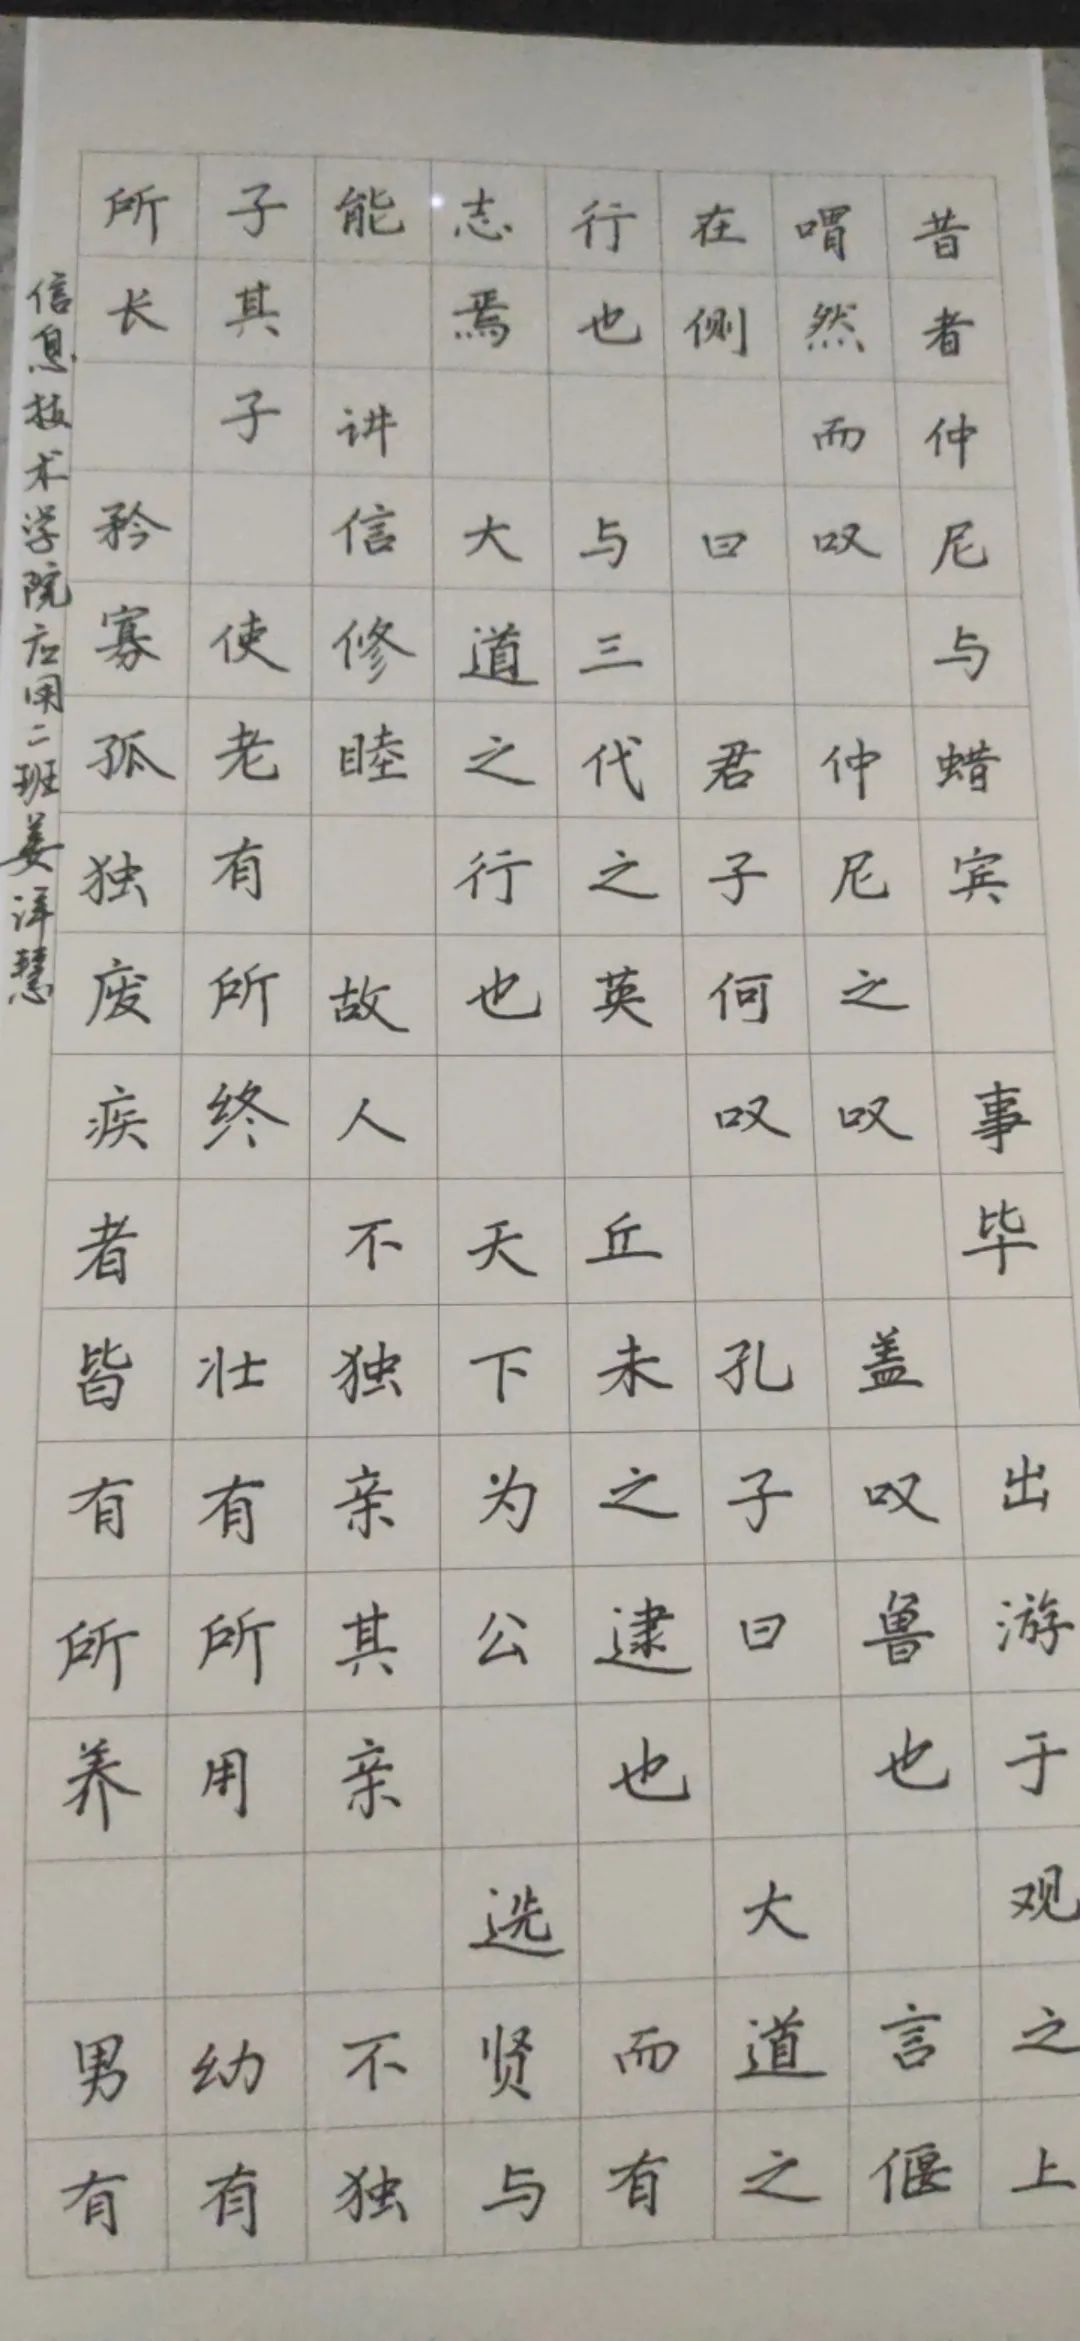 昔者仲尼与蜡宾 事毕 出游于观之上
喟然而叹 仲尼之叹 盖叹鲁也 言偃
在侧 曰 君子何叹 孔子曰 大道之
行也 与三代之英 丘未之逮也 而有
志焉 大道之行也 天下为公 选贤与
能 讲信修睦 故人不独亲其亲 不独
子其子 使老有所终 壮有所用 幼有
所长 矜寡孤独废疾者皆有所养 男有
信息技术学院应用二班姜洋慧